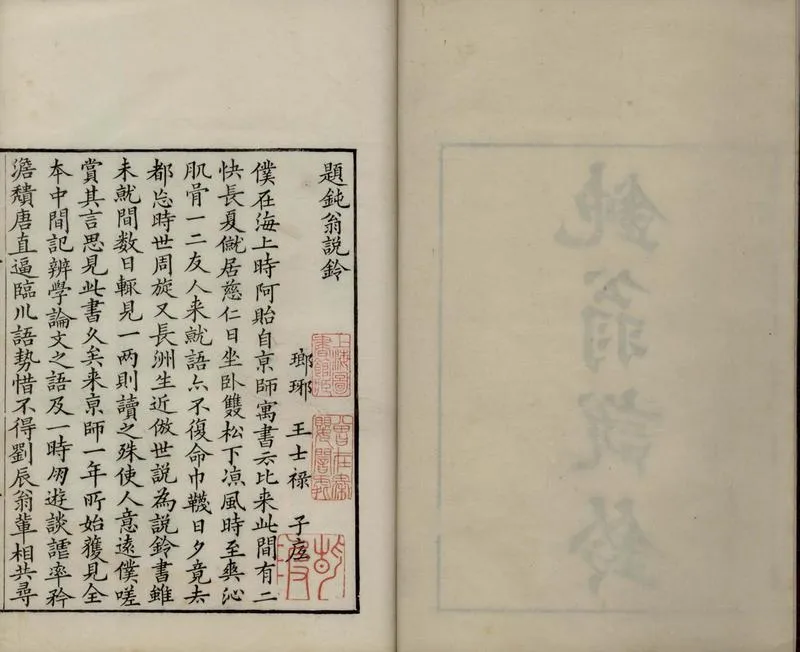 鈍翁説鈴
題鈍翁説鈴
瑯琊 王士禄 子底
僕在海上時阿貽自京師寓書云比来此間有二
快長夏僦居慈仁日坐卧雙松下凉風時至爽沁
肌骨一二友人来就語亦不復命巾韈日夕竟去
都忘時世周旋又長洲生近倣世説為説鈴書雖
未就間数日輒見一两則讀之殊使人意遠僕嗟
賞其言思見此書久矣来京師一年所始獲見全
本中間記辨學論文之語及一時朋遊談謔率矜
澹穨唐直逼臨川語勢惜不得劉辰翁軰相共尋
上海圖書館藏
曾在秦嬰闇處